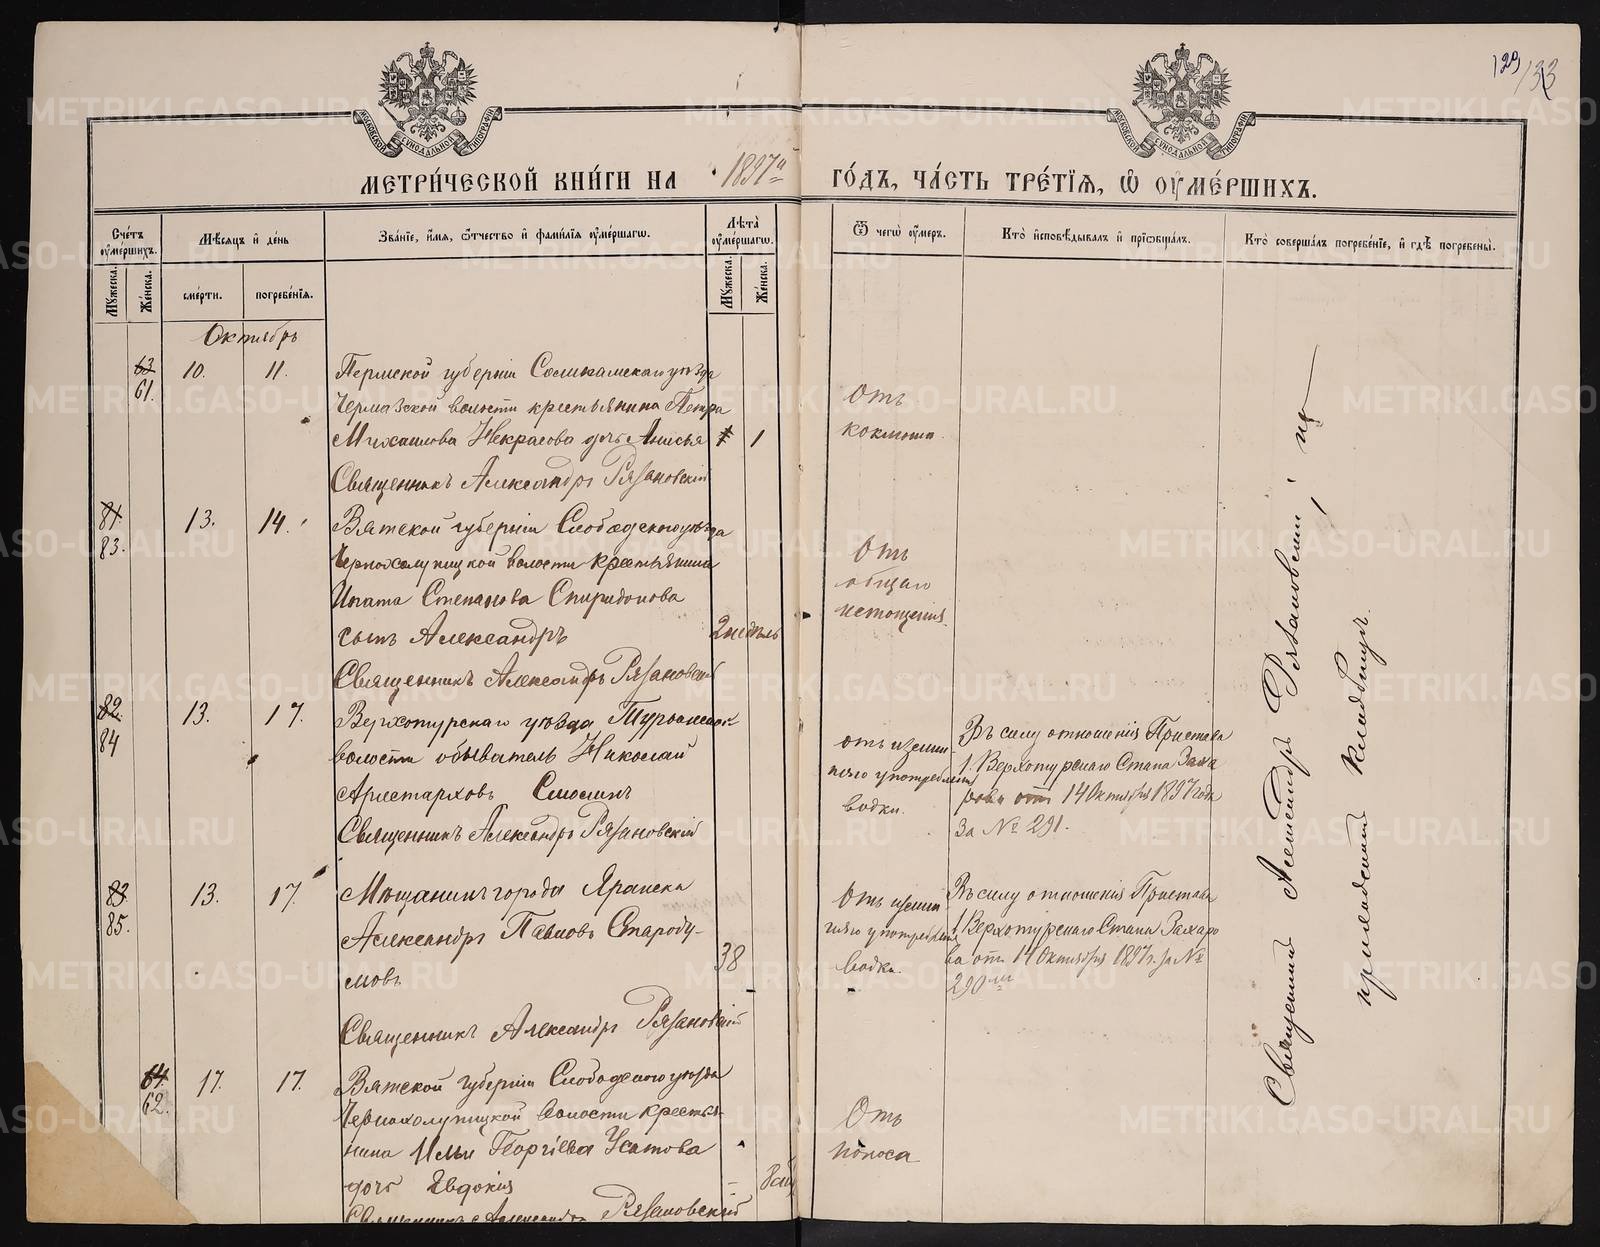 129/33
МЕТРИ́ЧЕСКОЙ КНИ́ГИ НА 1897й ГО́ДЪ, ЧА́СТЬ ТРЕ́ТІѦ, Ѽ ОУ҆МЕ́РШИХЪ.
Сче́тъ оумершихъ.
Мꙋжеска.
Же́нска.
Мѣсѧцъ и де́нь
сме́рти.
погребе́нїѧ.
Зва́нїе, и́мѧ, ѿтчество и фами́лїѧ оуме́ршагѡ.
Лѣта̀ оуме́ршагѡ.
Мꙋжеска.
Же́нска.
Ѿ чегѡ̀ оу́меръ.
Кто̀ исповѣ́дывалъ и прїѡбща́лъ.
Кто̀ соверша́лъ погребе́нїе, и гдѣ̀ погребены̀.
Октябрь
63
61.
10.
11.
Пермской губерніи Соликамскаго уѣзда
Чермазской волости крестьянина Петра
Михаилова Некрасова дочь Анисья
1
1
Священникъ Александръ Рязановскій
Отъ
коклюша.
81.
83.
13.
14.
Вятской губерніи Слободскаго уѣзда
Чернохолуницкой волости крестьянина
Игната Степанова Спиридонова
сынъ Александръ
2 недѣль
Священникъ Александръ Рязановскій
Отъ
общаго
истощенія.
82.
84
13.
17.
Верхотурскаго уѣзда Турьинской
волости обыватель Николай
Аристарховъ Смолинъ
Священникъ Александръ Рязановскій
отъ излиш-
няго употребленія
водки.
Въ силу отношенія Пристава
1. Верхотурскаго Стана Заха
рова отъ 14 Октября 1897 года
За № 291.
83.
85.
13.
17.
Мѣщанинъ города Яранска
Александръ Павловъ Староду-
мовъ
38
Священникъ Александръ Рязановскій
Отъ излиш
няго употребленія
водки.
Въ силу отношенія Пристава
1 Верхотурскаго Стана Захаро
ва отъ 14 Октября 1897 г. за №
290мъ
64.
62.
17.
17.
Вятской губерніи Слободскаго уѣзда
Чернохолуницкой волости крестья-
нина Ильи Георгіева Усатова
дочь Евдокія
Священникъ Александръ Рязановскій
Отъ
поноса
Священникъ Александръ Рязановскій на
приходскомъ кладбищѣ.
METRIKI.GASO-URAL.RU